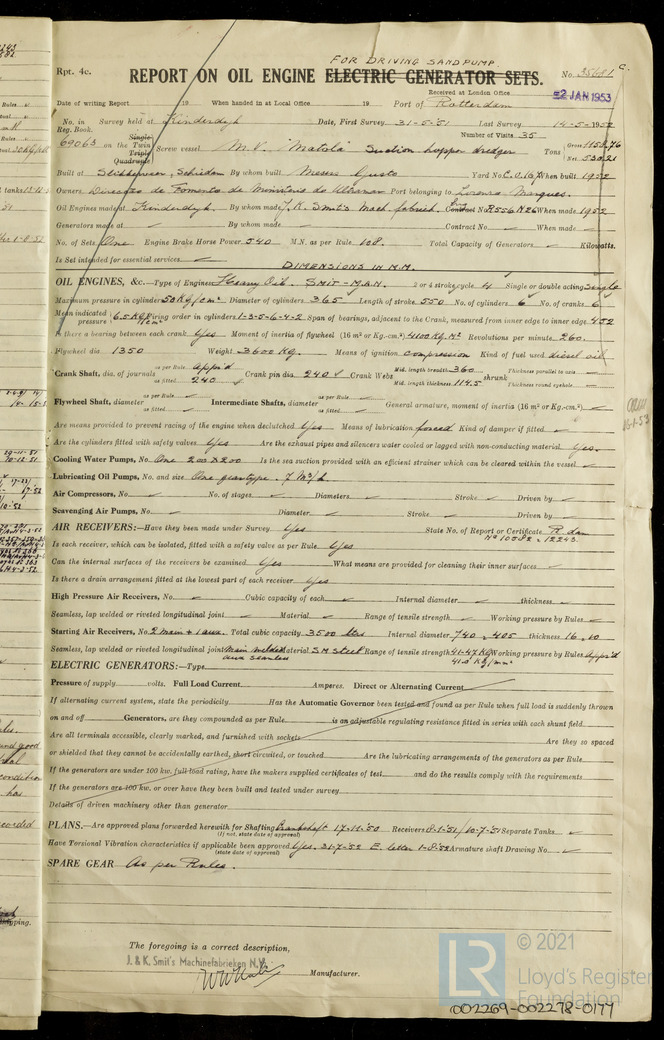 FOR DRIVING SAND PUMP
Rpt. 4c. REPORT ON OIL ENGINE ELECTRIC GENERATOR SETS. No. 35681 C.
Received at London Office 2 JAN 1953
Date of writing Report 19 When handed in at Local Office 19 Port of Rotterdam
No. in Reg. Book. Survey held at Kinderdijk Date, First Survey 31-5-51 Last Survey 14-5-1952
69063 on the Single Twin Triple Quadruple Screw vessel M.V. "Matola" Suction hopper dredger Number of Visits 35 Tons Gross 1158.76 Net 530.21
Built at Slikkerveer, Schiedam By whom built Messrs Gusto Yard No. C.O. 167 When built 1952
Owners Direcção de Fomento de Port belonging to Lorenzo Marques.
Oil Engines made at Kinderdijk. By whom made J. & K. Smit's Mach. fabriek. Contract No. When made 1952
Generators made at ✓ By whom made ✓ Contract No. ✓ When made ✓
No. of Sets One Engine Brake Horse Power 540 M.N. as per Rule 108. Total Capacity of Generators ✓ Kilowatts.
Is Set intended for essential services ✓
DIMENSIONS IN M.M.
OIL ENGINES, &c.—Type of Engines Heavy Oil. SMIT - M.A.N. 2 or 4 stroke cycle 4 Single or double acting Single
Maximum pressure in cylinders 50 Kg/cm² Diameter of cylinders 365 Length of stroke 550 No. of cylinders 6 No. of cranks 6
Mean indicated pressure 6.5 KG/cm² Firing order in cylinders 1-3-5-6-4-2 Span of bearings, adjacent to the Crank, measured from inner edge to inner edge 452
Is there a bearing between each crank Yes Moment of inertia of flywheel (16 m² or Kg.-cm.²) 4100 KG. M² Revolutions per minute 260.
Flywheel dia 1350 Weight 3600 KG. Means of ignition compression Kind of fuel used diesel oil
Crank Shaft, dia. of journals as per Rule App'd as fitted 240 Crank pin dia 240 Crank Webs Mid. length breadth 360 Mid. length thickness 114.5 shrunk Thickness parallel to axis ✓ Thickness round eyehole ✓
Flywheel Shaft, diameter as per Rule ✓ as fitted ✓ Intermediate Shafts, diameter as per Rule ✓ as fitted ✓ General armature, moment of inertia (16 m² or Kg.-cm.²) ✓
Are means provided to prevent racing of the engine when declutched Yes Means of lubrication forced Kind of damper if fitted ✓
Are the cylinders fitted with safety valves Yes Are the exhaust pipes and silencers water cooled or lagged with non-conducting material Yes.
Cooling Water Pumps, No. One 200 x 200 Is the sea suction provided with an efficient strainer which can be cleared within the vessel ✓
Lubricating Oil Pumps, No. and size One geartype. 7 M³/h.
Air Compressors, No. ✓ No. of stages ✓ Diameters ✓ Stroke ✓ Driven by ✓
Scavenging Air Pumps, No. ✓ Diameter ✓ Stroke ✓ Driven by ✓
AIR RECEIVERS:—Have they been made under Survey Yes State No. of Report or Certificate R'dam
No 10582 12243
Is each receiver, which can be isolated, fitted with a safety valve as per Rule Yes
Can the internal surfaces of the receivers be examined Yes What means are provided for cleaning their inner surfaces ✓
Is there a drain arrangement fitted at the lowest part of each receiver Yes
High Pressure Air Receivers, No. ✓ Cubic capacity of each ✓ Internal diameter ✓ thickness ✓
Seamless, lap welded or riveted longitudinal joint ✓ Material ✓ Range of tensile strength ✓ Working pressure by Rules ✓
Starting Air Receivers, No. 2 main + 1 aux. Total cubic capacity 3500 ltrs Internal diameter 740 405 thickness 16 10
Seamless, lap welded or riveted longitudinal joint Main welded aux seamless Material S M steel Range of tensile strength 41-47 KG 41.0 KG/mm² Working pressure by Rules App'd
ELECTRIC GENERATORS:—Type
Pressure of supply volts. Full Load Current Amperes. Direct or Alternating Current
If alternating current system, state the periodicity Has the Automatic Governor been tested and found as per Rule when full load is suddenly thrown
on and off Generators, are they compounded as per Rule is an adjustable regulating resistance fitted in series with each shunt field
Are all terminals accessible, clearly marked, and furnished with sockets Are they so spaced
or shielded that they cannot be accidentally earthed, short circuited, or touched Are the lubricating arrangements of the generators as per Rule
If the generators are under 100 kw. full load rating, have the makers supplied certificates of test and do the results comply with the requirements
If the generators are 100 kw. or over have they been built and tested under survey
Details of driven machinery other than generator
PLANS.—Are approved plans forwarded herewith for Shafting Crankshaft 17-11-50 Receivers 8-1-51/10-7-51 Separate Tanks ✓
(If not, state date of approval)
Have Torsional Vibration characteristics if applicable been approved Yes. 31-7-52 E. letter 1-8-52 Armature shaft Drawing No. ✓
(state date of approval)
SPARE GEAR As per Rules.
The foregoing is a correct description,
J. & K. Smit's Machinefabrieken N.V.
Manufacturer.
LR © 2021
Lloyd's Register
Foundation
002269-002278-0177